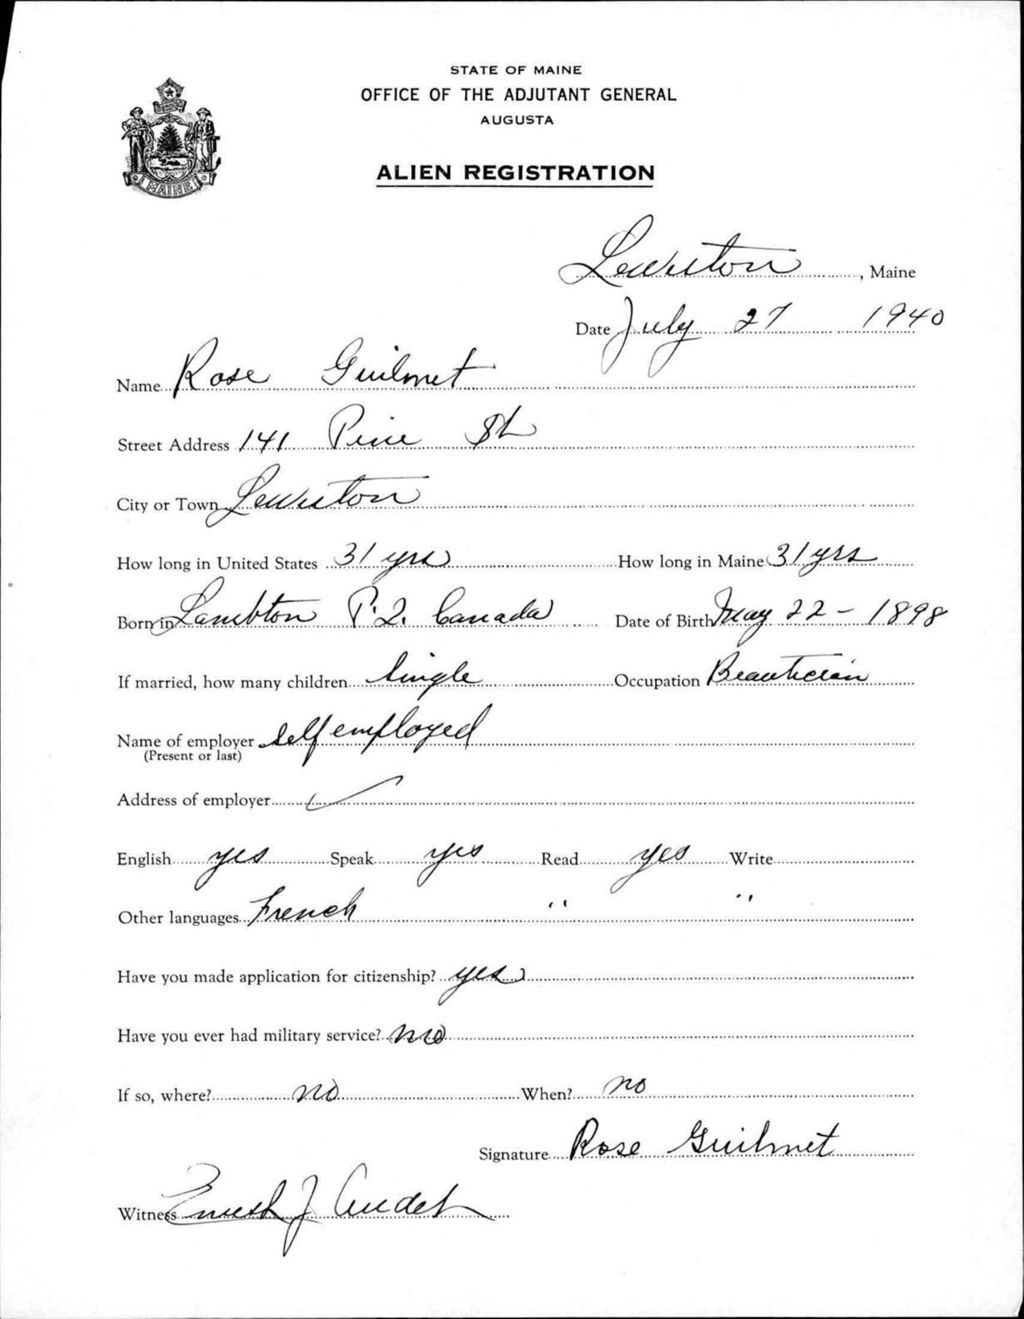 STATE OF MAINE
OFFICE OF THE ADJUTANT GENERAL
AUGUSTA
ALIEN REGISTRATION
MAINE
Lewiston, Maine
Date July 27 1940
Name Rose Guilmet
Street Address 141 Pine St
City or Town Lewiston
How long in United States 31 yrs How long in Maine 31 yrs
Born in Lambton P.Q. Canada Date of Birth May 22 - 1898
If married, how many children Single Occupation Beautician
Name of employer Self employed
(Present or last)
Address of employer
English yes Speak yes Read yes Write
Other languages French " "
Have you made application for citizenship? yes
Have you ever had military service? no
If so, where? no When? no
Signature Rose Guilmet
Witness J Audet